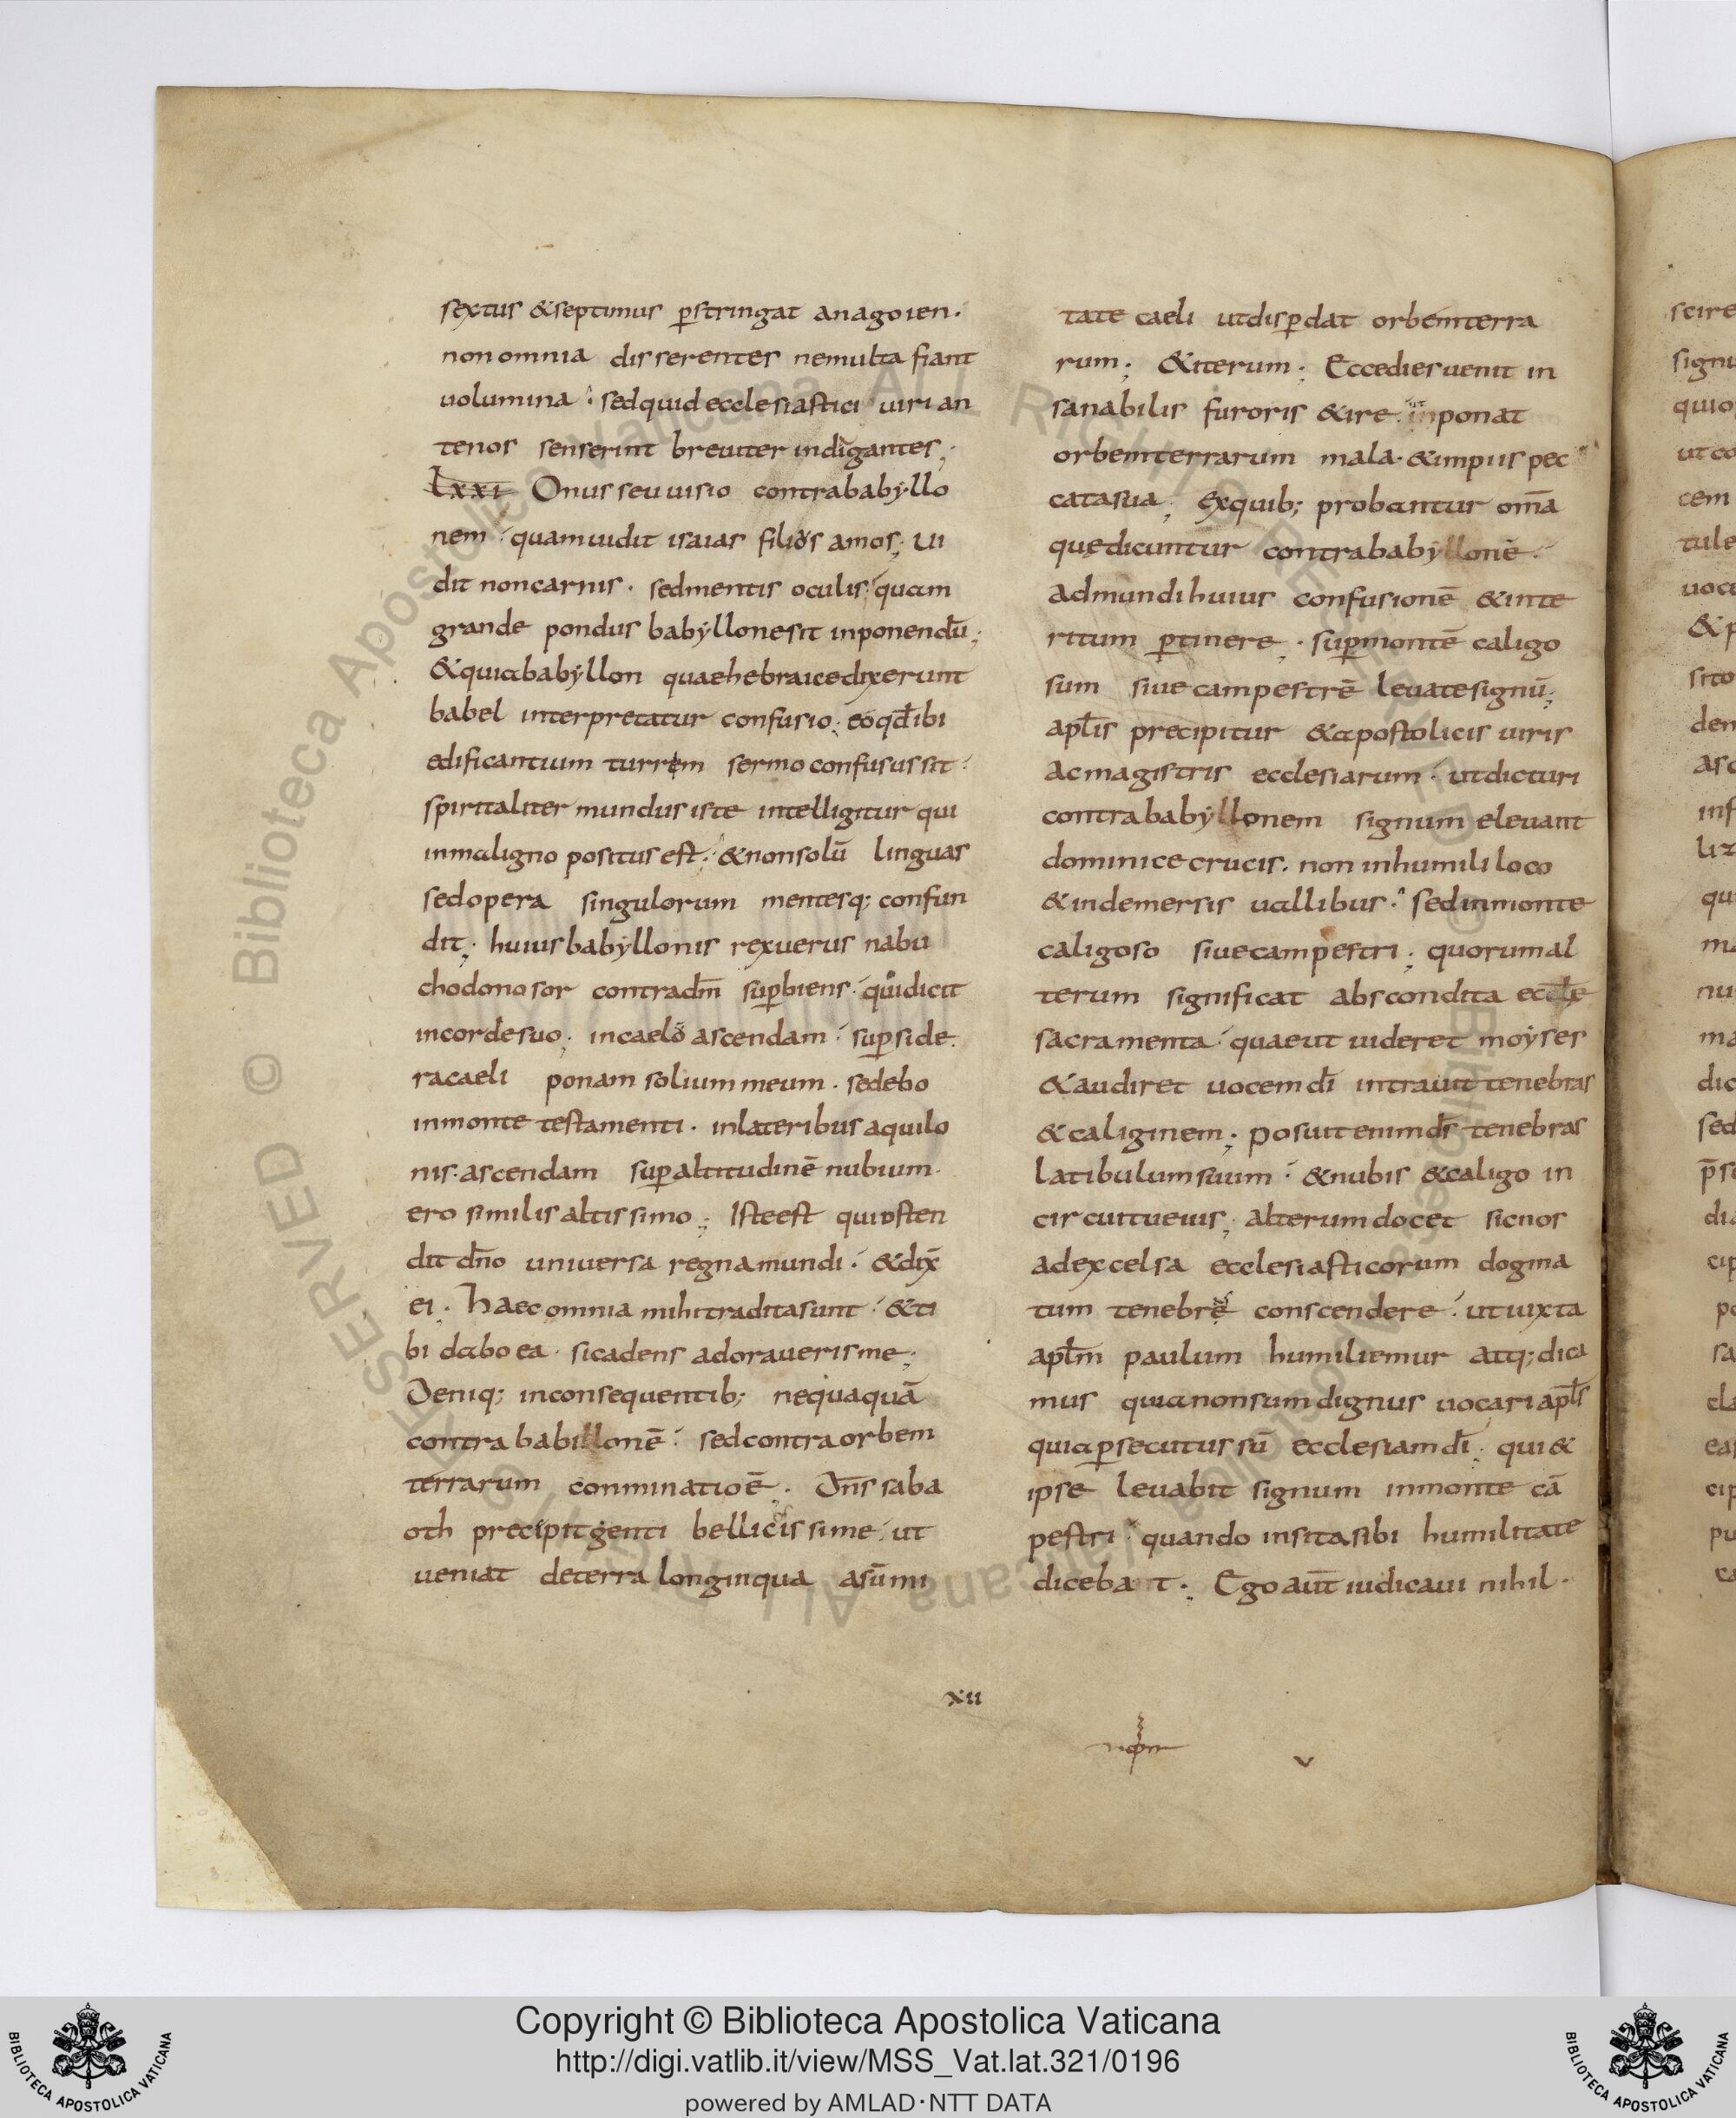 sextus &septimus p̄stringat anagoien·
non omnia disserentes nemulta fiant
uolumina· sedquidecclesiastici uiri an
tenos senserint breuiter indigantes;
Lxxi Onus seu uisio contrababyllo
nem· quamuidit isaias filios amos; Ui
dit noncarnis· sedmentis oculis quam
grande pondus babyllonesit inponendū;
&quiababyllon quaehebraicedixerunt
babel interpretatur confusio; eoqđibi
edificantium turrem sermo confusus sit·
spiritaliter mundus iste intelligitur qui
inmaligno positus est· &nonsolū linguas
sedopera singulorum mentesq; confun
dit; huiusbabyllonis rexuerus nabu
chodonosor contradm̄ sup̄biens· quidicit
incordesuo; incaelo ascendam· sup̄side
racaeli ponam solium meum· sedebo
inmonte testamenti· inlateribus aquilo
nis· ascendam sup̄altitudinē nubium·
ero similis altissimo; Isteest quiosten
dit dn̄o uniuersa regnamundi· &dix̄
ei; haec omnia mihitraditasunt· &ti
bi dabo ea· sicadens adoraueris me;
Deniq; inconsequentib; nequaquā
contra babillonē· sedcontraorbem
terrarum conminatioē; Dn̄s saba
oth precipit genti bellicissime· ut
ueniat deterra longinqua asūmi
tate caeli utdisp̄dat orbemterra
rum; &iterum; Eccediesuenit in
sanabilis furoris &ire· inponat
orbemterrarum mala· &impiis pec
catasua; Exquib; probantur om̄a
quedicuntur contrababyllonē·
admundihuius confusionē &inte
ritum p̄tinere; sup̄montē caligo
sum siue campestrē leuatesignū;
apl̄is precipitur &apostolicis uiris
acmagistris ecclesiarum· utdicturi
contrababyllonem signum eleuant
dominice crucis· non inhumili loco
&indemersis uallibus· sedinmonte
caligoso siuecampestri; quorumal
terum significat abscondita eccłe
sacramenta· quaeut uideret moyses
&audiret uocem dī intrauit tenebras
&caliginem; posuitenimds̄ tenebras
latibulumsuum· &nubis &caligo in
circuitueius; alterumdocet sicnos
adexcelsa ecclesiasticorum dogma
tum tenebrę conscendere· utiuxta
apl̄m paulum humiliemur atq; dica
mus quianonsumdignus uocariapl̄s
quiap̄secutus sū ecclesiam dī; qui&
ipse leuabit signum inmonte cā
pestri· quando insitasibi humilitate
diceba t; Ego aūt iudicaui nihil·
xii
v
scire
signu
quio
ut co
cem
tule
uoca
sito
den
asc
inf
qui
ma
nu
ma
dic
sed
dia
cip
po
sa
cla
eas
cip
pu
ca
© Biblioteca Apostolica Vaticana ALL RIGHTS RESERVED
Copyright © Biblioteca Apostolica Vaticana
http://digi.vatlib.it/view/MSS_Vat.lat.321/0196
powered by AMLAD·NTT DATA
BIBLIOTECA APOSTOLICA VATICANA
BIBLIOTECA APOSTOLICA VATICANA